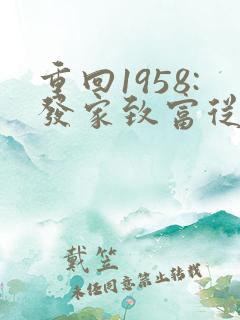 重回1958:
發家致富從
戴笠
未經同意禁止轉載